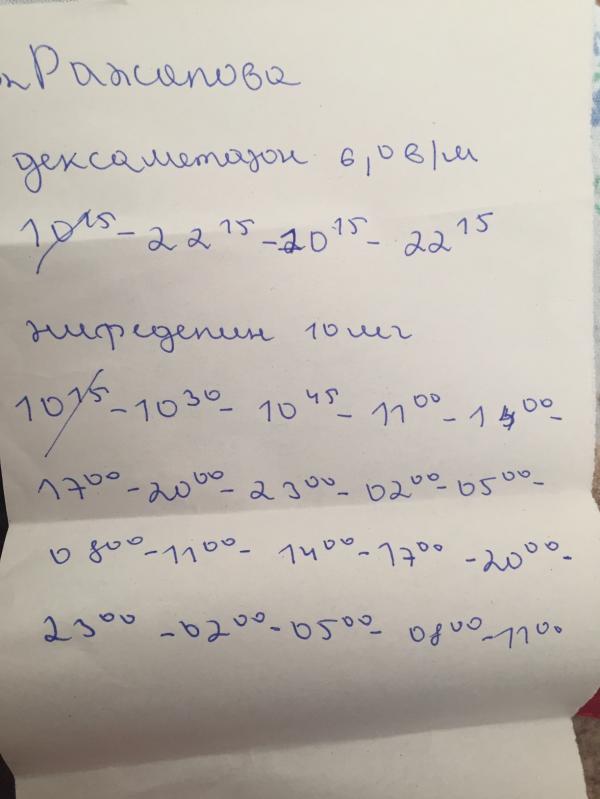 Ражапова
дексаметазон 6,0 в/м
10¹⁵ - 22¹⁵ - 10¹⁵ - 22¹⁵
нифедепин 10 мг
10¹⁵ - 10³⁰ - 10⁴⁵ - 11⁰⁰ - 14⁰⁰ -
17⁰⁰ - 20⁰⁰ - 23⁰⁰ - 02⁰⁰ - 05⁰⁰ -
08⁰⁰ - 11⁰⁰ - 14⁰⁰ - 17⁰⁰ - 20⁰⁰ -
23⁰⁰ - 02⁰⁰ - 05⁰⁰ - 08⁰⁰ - 11⁰⁰